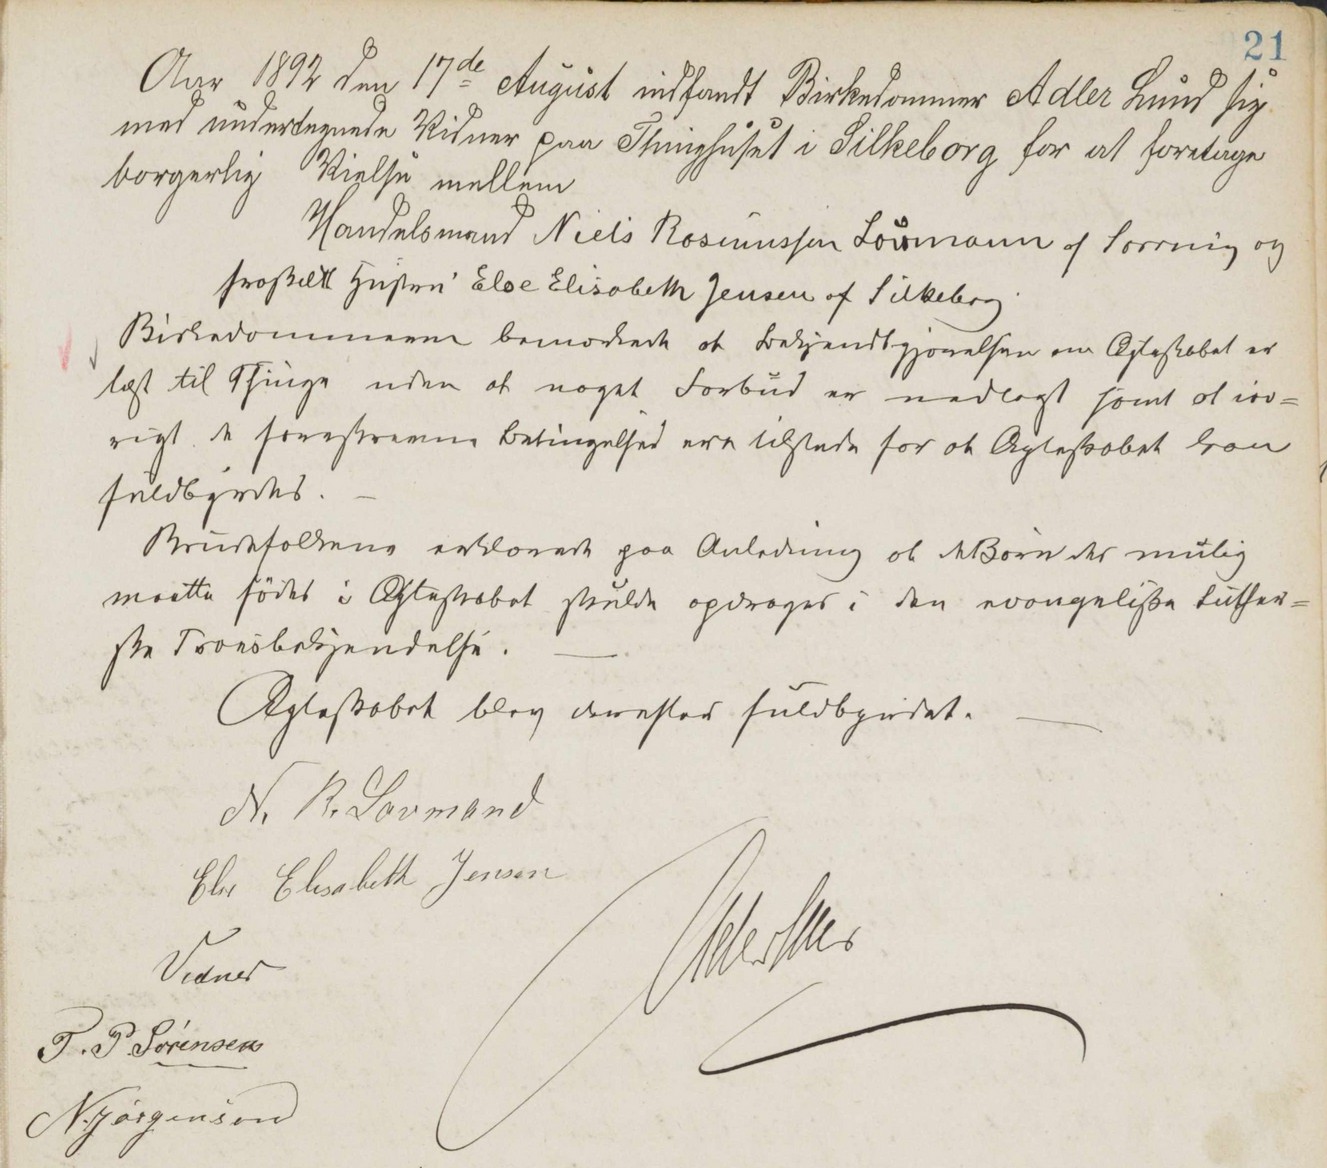 21
Aar 1892 den 17de August indfandt Birkedommer Adler Lund sig
med undertegnede Vidner paa Thinghuset i Silkeborg for at foretage
borgerlig Vielse mellem
Handelsmand Niels Rasmussen Lavmann af Sorring og
fraskilt Hustru Else Elisabeth Jensen af Silkeborg.
Birkedommeren bemærkede at Bekjendtgjørelsen om Ægteskabet er
læst til Thinge uden at noget Forbud er nedlagt samt at iøv=
rigt de foreskrevne Betingelser ere tilstede for at Ægteskabet kan
fuldbyrdes. —
Brudefolkene erklærede paa Anledning at de Børn der mulig
maatte fødes i Ægteskabet skulde opdrages i den evangeliske luther=
ske Troesbekjendelse. —
Ægteskabet blev derefter fuldbyrdet. —
N. R. Lavmand
Else Elisabeth Jensen
Adler Lund
Vidner
P. Sørensen
N. Jørgensen